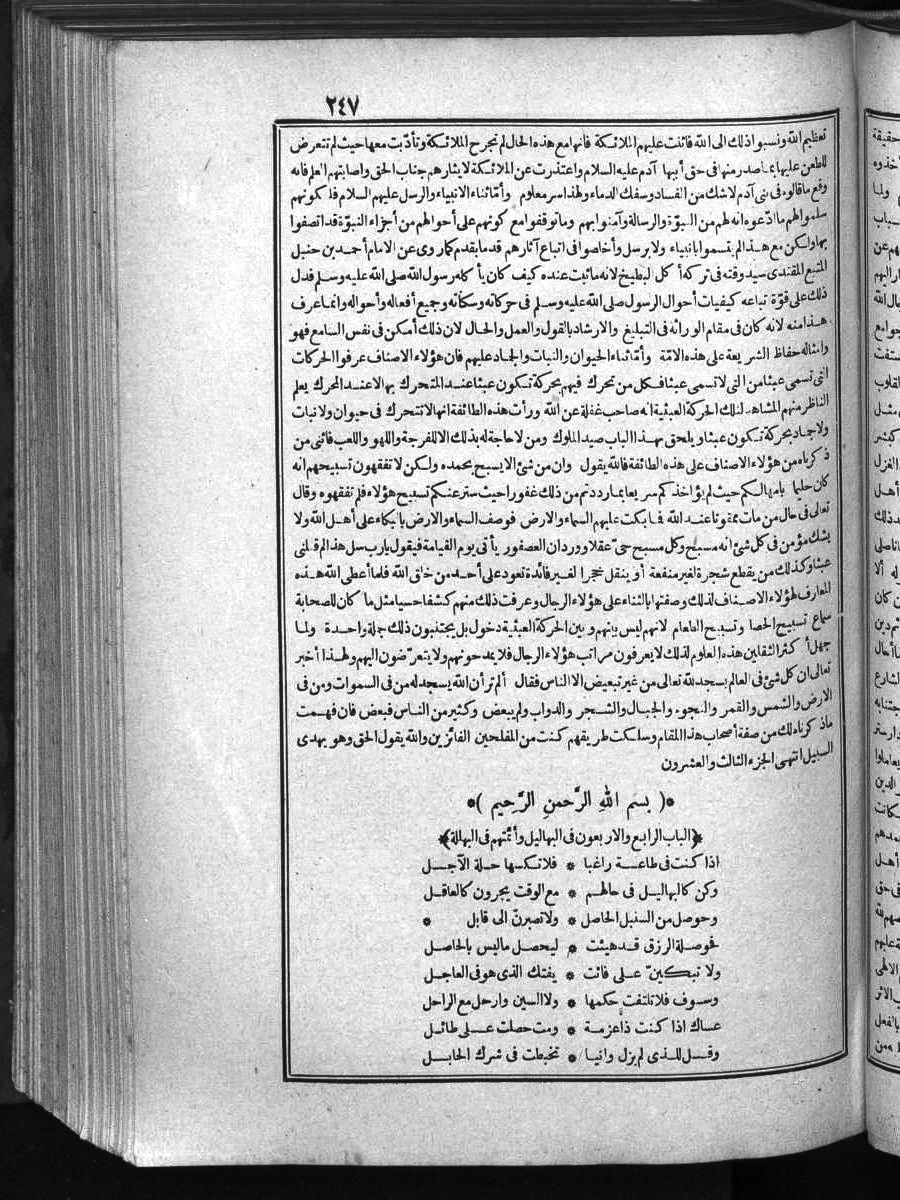 ٢٤٧
تعظيم الله ونسبوا ذلك الى الله فأثنت عليهم الملائكة فانها مع هذه الحال لم تجرح الملائكة وتأدّبت معها حيث لم تتعرض
للطعن عليها بما صدر منها فى حق أبيها آدم عليه السلام واعتذرت عن الملائكة لايثارهم جناب الحق واصابتهم العلم فانه
وقع ما قالوه فى بنى آدم لاشك من الفساد وسفك الدماء ولهذا سر معلوم وأمّا ثناء الانبياء والرسل عليهم السلام فلكونهم
سلموا لهم ما ادّعوه انه لهم من النبوّة والرسالة وآمنوا بهم وما توقفوا مع كونهم على أحوالهم من أجزاء النبوّة قد اتصفوا
بها ولكن مع هذا لم يتسموا بانبياء ولا برسل وأخلصوا فى اتباع آثارهم قدما بقدم كما روى عن الامام أحمد بن حنبل
المتبع المقتدى سيد وقته فى تركه أكل البطيخ لانه ما ثبت عنده كيف كان يأكله رسول الله صلى الله عليه وسلم فدل
ذلك على قوّة تباعه كيفيات أحوال الرسول صلى الله عليه وسلم فى حركاته وسكناته وجميع أفعاله وأحواله وانما عرف
هذا منه لانه كان فى مقام الوراثة فى التبليغ والارشاد بالقول والعمل والحال لان ذلك أمكن فى نفس السامع فهو
وامثاله حفاظ الشريعة على هذه الامّة وأمّا ثناء الحيوان والنبات والجماد عليهم فان هؤلاء الاصناف عرفوا الحركات
التى تسمى عبثا من التى لا تسمى عبثا فكل من تحرك فيهم بحركة تكون عبثا عند المتحرك بها لا عند المحرك يعلم
الناظر منهم المشاهد لتلك الحركة العبثية انه صاحب غفلة عن الله ورأت هذه الطائفة انها لا تتحرك فى حيوان ولا نبات
ولا جماد بحركة تكون عبثا ويلحق بهذا الباب صيد الملوك ومن لا حاجة له بذلك الا للفرجة واللهو واللعب فأثنى من
ذكرناه من هؤلاء الاصناف على هذه الطائفة فالله يقول وان من شئ الا يسبح بحمده ولكن لا تفقهون تسبيحهم انه
كان حليما بامهالكم حيث لم يؤاخذكم سريعا بما رددتم من ذلك غفورا حيث ستر عنكم تسبيح هؤلاء فلم تفقهوه وقال
تعالى فى حال من مات ممقوتا عند الله فما بكت عليهم السماء والارض فوصف السماء والارض بالبكاء على أهل الله ولا
يشك مؤمن فى كل شئ انه مسبح وكل مسبح حىّ عقلا وورد ان العصفور يأتى يوم القيامة فيقول يارب سل هذا لم قتلنى
عبثا وكذلك من يقطع شجرة لغير منفعة أو ينقل حجرا لغير فائدة تعود على أحد من خلق الله فلما أعطى الله هذه
المعارف لهؤلاء الاصناف لذلك وصفتها بالثناء على هؤلاء الرجال وعرفت ذلك منهم كشفا حسيا مثل ما كان للصحابة
سماع تسبيح الحصا وتسبيح الطعام لانهم ليس بينهم وبين الحركة العبثية دخول بل يجتنبون ذلك جملة واحدة ولما
جهل أكثر الثقلين هذه العلوم لذلك لا يعرفون مراتب هؤلاء الرجال فلا يمدحونهم ولا يتعرّضون اليهم ولهذا أخبر
تعالى ان كل شئ فى العالم يسجد لله تعالى من غير تبعيض الا الناس فقال ألم تر أن الله يسجد له من فى السموات ومن فى
الارض والشمس والقمر والنجوم والجبال والشجر والدواب ولم يبعض وكثير من الناس فبعض فان فهمت
ما ذكرناه لك من صفة أصحاب هذا المقام وسلكت طريقهم كنت من المفلحين الفائزين والله يقول الحق وهو يهدى
السبيل انتهى الجزء الثالث والعشرون
*( بسم الله الرَّحمنِ الرَّحِيم )*
﴿الباب الرابع والاربعون فى البهاليل وأئمّتهم فى البهللة﴾
اذا كنت فى طاعة راغبا * فلا تكسها حلة الآجل
وكن كالبهاليل فى حالهم * مع الوقت يجرون كالعاقل
وحوصل من السنبل الحاصل * ولا تصبرنّ الى قابل *
فحوصلة الرزق قد هيئت * ليحصل ما ليس بالحاصل
ولا تبكينّ على فائت * يفتك الذى هو فى العاجل
وسوف فلا تلتفت حكمها * ولا السين وارحل مع الراحل
عساك اذا كنت ذا عزمة * ومت حصلت على طائل
وقل للذى لم يزل وانيا * تخبطت فى شرك الحابل